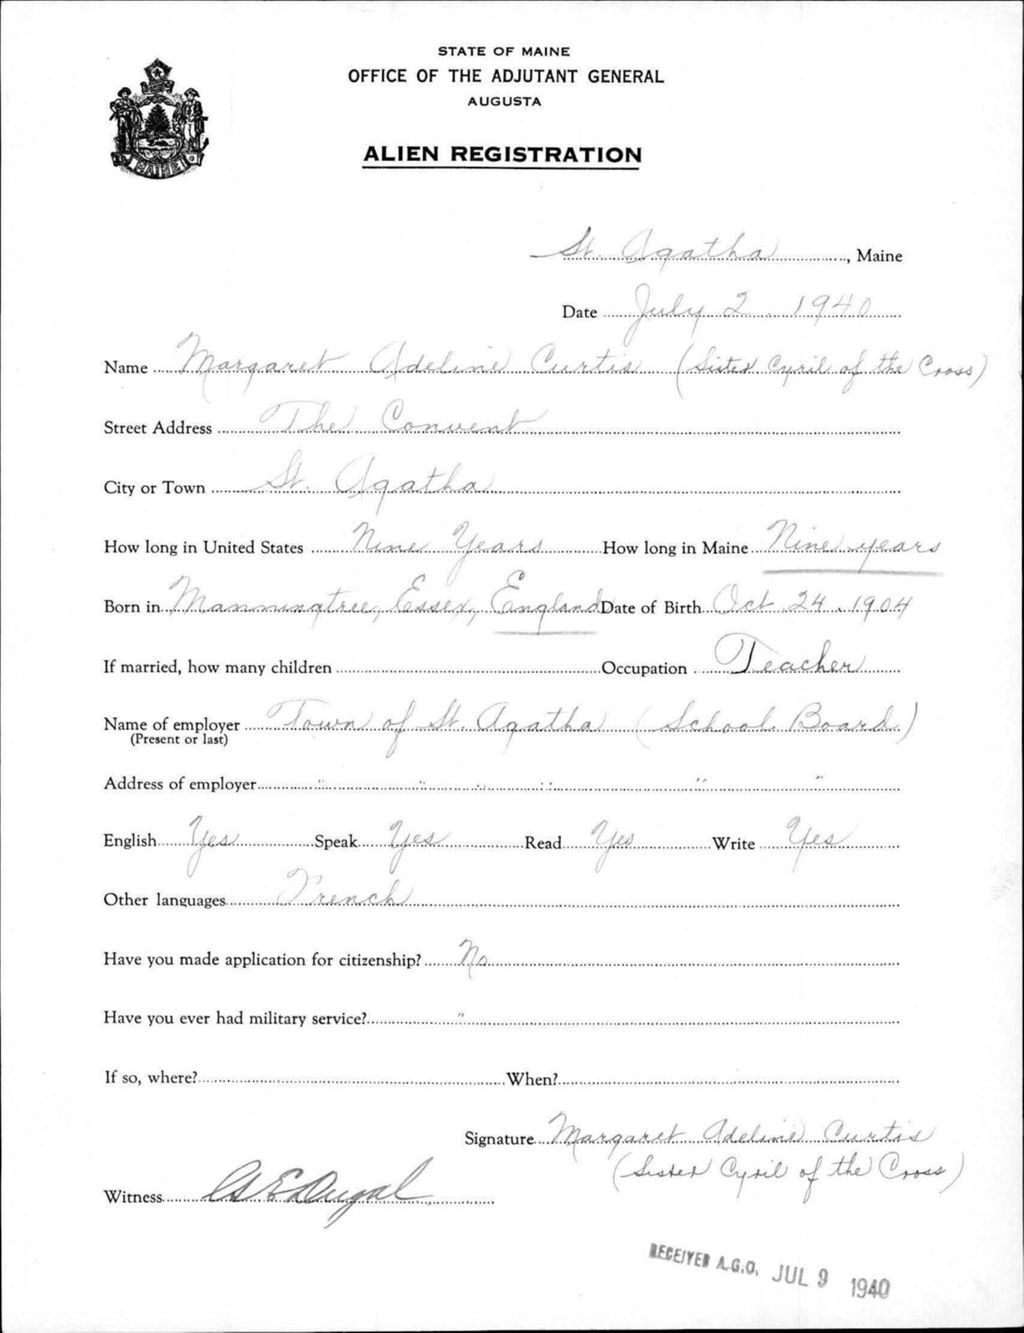 STATE OF MAINE
OFFICE OF THE ADJUTANT GENERAL
AUGUSTA
ALIEN REGISTRATION
MAINE
St. Agatha, Maine
Date July 2 1940
Name Margaret Adeline Curtis (Sister Cyril of the Cross)
Street Address The Convent
City or Town St. Agatha
How long in United States Nine Years How long in Maine Nine years
Born in Manningtree, Essex, England Date of Birth Oct 24, 1904
If married, how many children Occupation Teacher
Name of employer Town of St. Agatha (School Board)
(Present or last)
Address of employer " " " " " "
English Yes Speak Yes Read Yes Write Yes
Other languages French
Have you made application for citizenship? No
Have you ever had military service? "
If so, where? When?
Signature Margaret Adeline Curtis
(Sister Cyril of the Cross)
Witness Dugal
RECEIVED A.G.O. JUL 9 1940